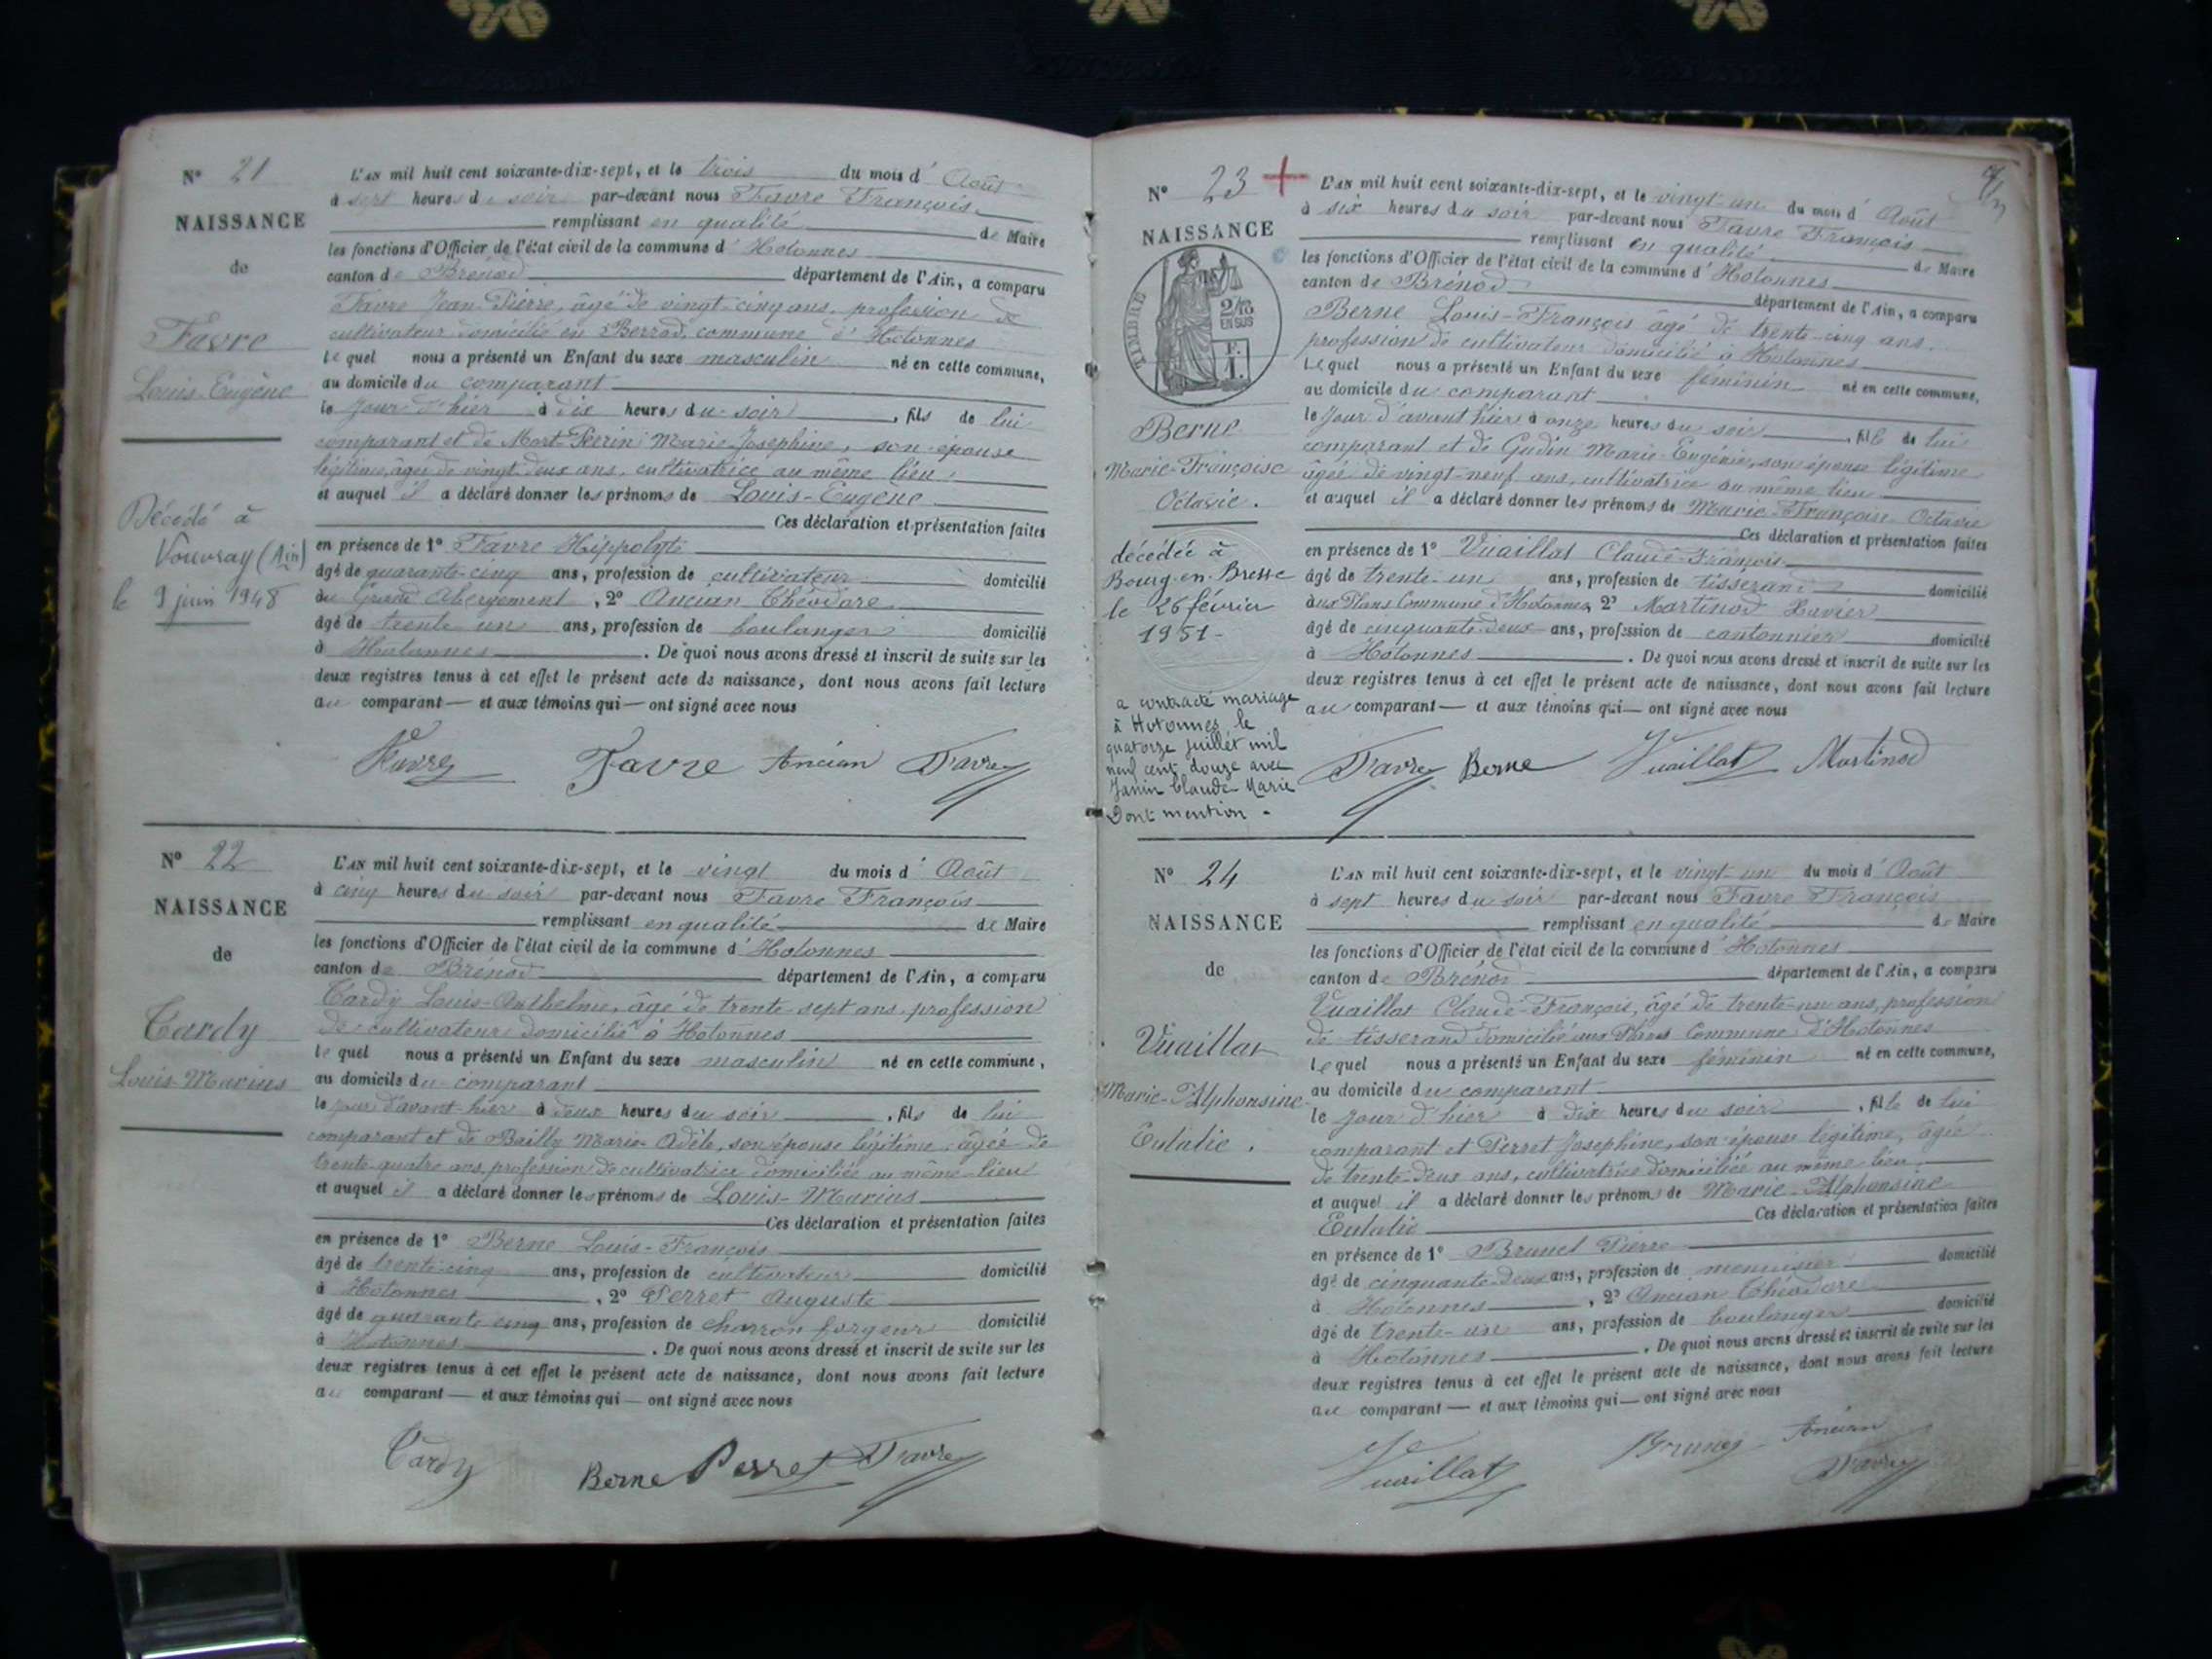 N° 21
NAISSANCE
de
Favre
Louis-Eugène
Décédé à
Vouvray (Ain)
le 9 juin 1948
L'AN mil huit cent soixante-dix-sept, et le trois du mois d'Août
à sept heures du soir par-devant nous Favre François
remplissant en qualité de Maire
les fonctions d'Officier de l'état civil de la commune d'Hotonnes
canton de Brénod département de l'Ain, a comparu
Favre Jean-Pierre, âgé de vingt-cinq ans, profession de
cultivateur domicilié en Berrod, commune d'Hotonnes
lequel nous a présenté un Enfant du sexe masculin né en cette commune,
au domicile du comparant
le jour d'hier à dix heures du soir, fils de lui
comparant et de Mort-Perrin Marie Josephine, son épouse
légitime, âgée de vingt deux ans, cultivatrice au même lieu
et auquel il a déclaré donner les prénoms de Louis-Eugène
Ces déclaration et présentation faites
en présence de 1° Favre Hippolyte
âgé de quarante-cinq ans, profession de cultivateur domicilié
au Grand Abergement, 2° Ancian Théodore
âgé de trente un ans, profession de boulanger domicilié
à Hotonnes. De quoi nous avons dressé et inscrit de suite sur les
deux registres tenus à cet effet le présent acte de naissance, dont nous avons fait lecture
au comparant — et aux témoins qui — ont signé avec nous
Favre Favre Ancian Favre
N° 22
NAISSANCE
de
Cardy
Louis-Marius
L'AN mil huit cent soixante-dix-sept, et le vingt du mois d'Août
à cinq heures du soir par-devant nous Favre François
remplissant en qualité de Maire
les fonctions d'Officier de l'état civil de la commune d'Hotonnes
canton de Brénod département de l'Ain, a comparu
Cardy Louis-Anthelme, âgé de trente-sept ans, profession
de cultivateur domicilié à Hotonnes
lequel nous a présenté un Enfant du sexe masculin né en cette commune,
au domicile du comparant
le jour d'avant-hier à deux heures du soir, fils de lui
comparant et de Bailly Marie Adèle, son épouse légitime, âgée de
trente-quatre ans, profession de cultivatrice domiciliée au même lieu
et auquel il a déclaré donner les prénoms de Louis-Marius
Ces déclaration et présentation faites
en présence de 1° Berne Louis-François
âgé de trente-cinq ans, profession de cultivateur domicilié
à Hotonnes, 2° Perret Auguste
âgé de quarante cinq ans, profession de charron forgeur domicilié
à Hotonnes. De quoi nous avons dressé et inscrit de suite sur les
deux registres tenus à cet effet le présent acte de naissance, dont nous avons fait lecture
au comparant — et aux témoins qui — ont signé avec nous
Cardy Berne Perret Favre
N° 23
NAISSANCE
TIMBRE
2/10
EN SUS
F.
1.
Berne
Marie-Françoise
Octavie.
décédée à
Bourg-en-Bresse
le 26 février
1951-
a contracté mariage
à Hotonnes le
quatorze juillet mil
neuf cent douze avec
Janin Claude Marie
Dont mention -
L'AN mil huit cent soixante-dix-sept, et le vingt un du mois d'Août
à six heures du soir par-devant nous Favre François
remplissant en qualité de Maire
les fonctions d'Officier de l'état civil de la commune d'Hotonnes
canton de Brénod département de l'Ain, a comparu
Berne Louis-François âgé de trente-cinq ans.
profession de cultivateur domicilié à Hotonnes
Lequel nous a présenté un Enfant du sexe féminin né en cette commune,
au domicile du comparant
le jour d'avant hier à onze heures du soir, fille de lui
comparant et de Gudin Marie-Eugénie, son épouse légitime
âgée de vingt-neuf ans, cultivatrice au même lieu
et auquel il a déclaré donner les prénoms de Marie-Françoise Octavie
Ces déclaration et présentation faites
en présence de 1° Vuaillat Claude-François
âgé de trente-un ans, profession de tisserand domicilié
aux Plans Commune d'Hotonnes, 2° Martinod Xavier
âgé de cinquante-deux ans, profession de cantonnier domicilié
à Hotonnes. De quoi nous avons dressé et inscrit de suite sur les
deux registres tenus à cet effet le présent acte de naissance, dont nous avons fait lecture
au comparant — et aux témoins qui — ont signé avec nous
Favre Berne Vuaillat Martinod
N° 24
NAISSANCE
de
Vuaillat
Marie-Alphonsine
Eulalie.
L'AN mil huit cent soixante-dix-sept, et le vingt-un du mois d'Août
à sept heures du soir par-devant nous Favre François
remplissant en qualité de Maire
les fonctions d'Officier de l'état civil de la commune d'Hotonnes
canton de Brénod département de l'Ain, a comparu
Vuaillat Claude-François, âgé de trente-un ans, profession
de tisserand domicilié aux Plans Commune d'Hotonnes
lequel nous a présenté un Enfant du sexe féminin né en cette commune,
au domicile du comparant
le jour d'hier à dix heures du soir, fille de lui
comparant et Perret Josephine, son épouse légitime, âgée
de trente-deux ans, cultivatrice domiciliée au même lieu
et auquel il a déclaré donner les prénoms de Marie-Alphonsine
Eulalie Ces déclaration et présentation faites
en présence de 1° Brunet Pierre
âgé de cinquante-deux ans, profession de menuisier domicilié
à Hotonnes, 2° Ancian Théodore
âgé de trente-un ans, profession de boulanger domicilié
à Hotonnes. De quoi nous avons dressé et inscrit de suite sur les
deux registres tenus à cet effet le présent acte de naissance, dont nous avons fait lecture
au comparant — et aux témoins qui — ont signé avec nous
Vuaillat Brunet Ancian
Favre